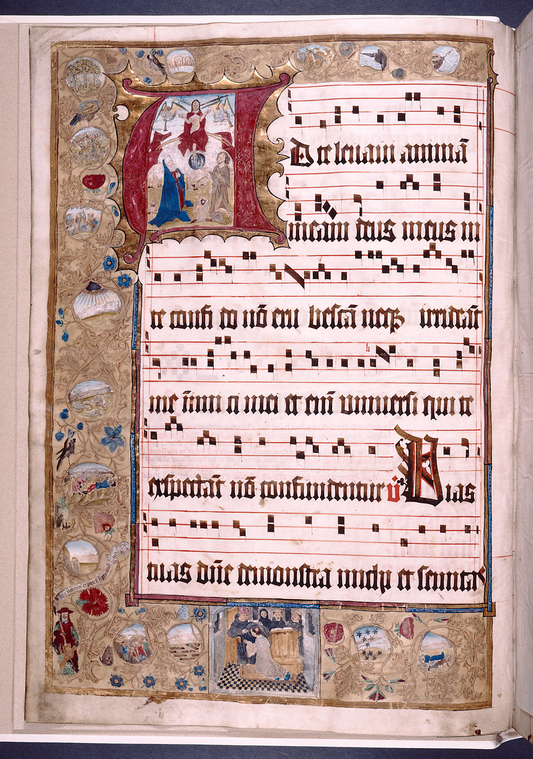 A D te levavi animā
meam deus meus in
te confi do nō eru bescā neq irrideāt
me inimi ci mei et eni universi qui te
expectāt nō confundentur v̄ Vias
tuas dñe demonstra michi et semitas